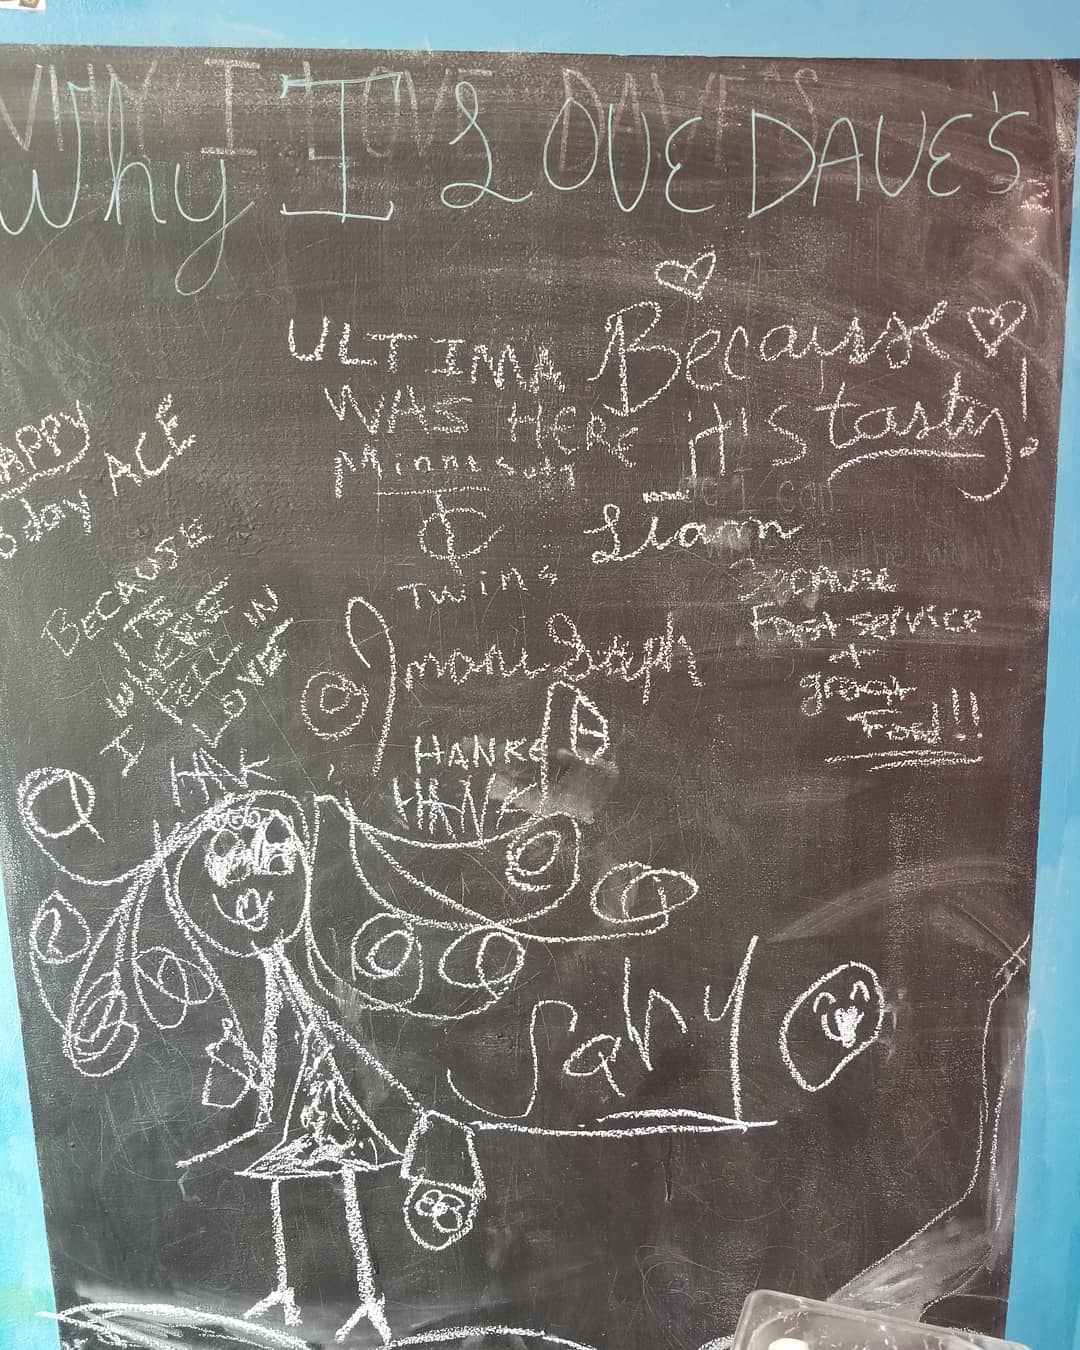 WHY I LOVE DAVE'S
Why I LOVE DAVE'S
Because
it's tasty!
ULTIMA
WAS HERE
Minnesota
TC
Twins
HAPPY
ACE
BECAUSE
ITS
WHERE
I FELL IN
LOVE
Liam
Because
Fast service
+
great
Food!!
Imani Steph
HANK
HANK
HAK